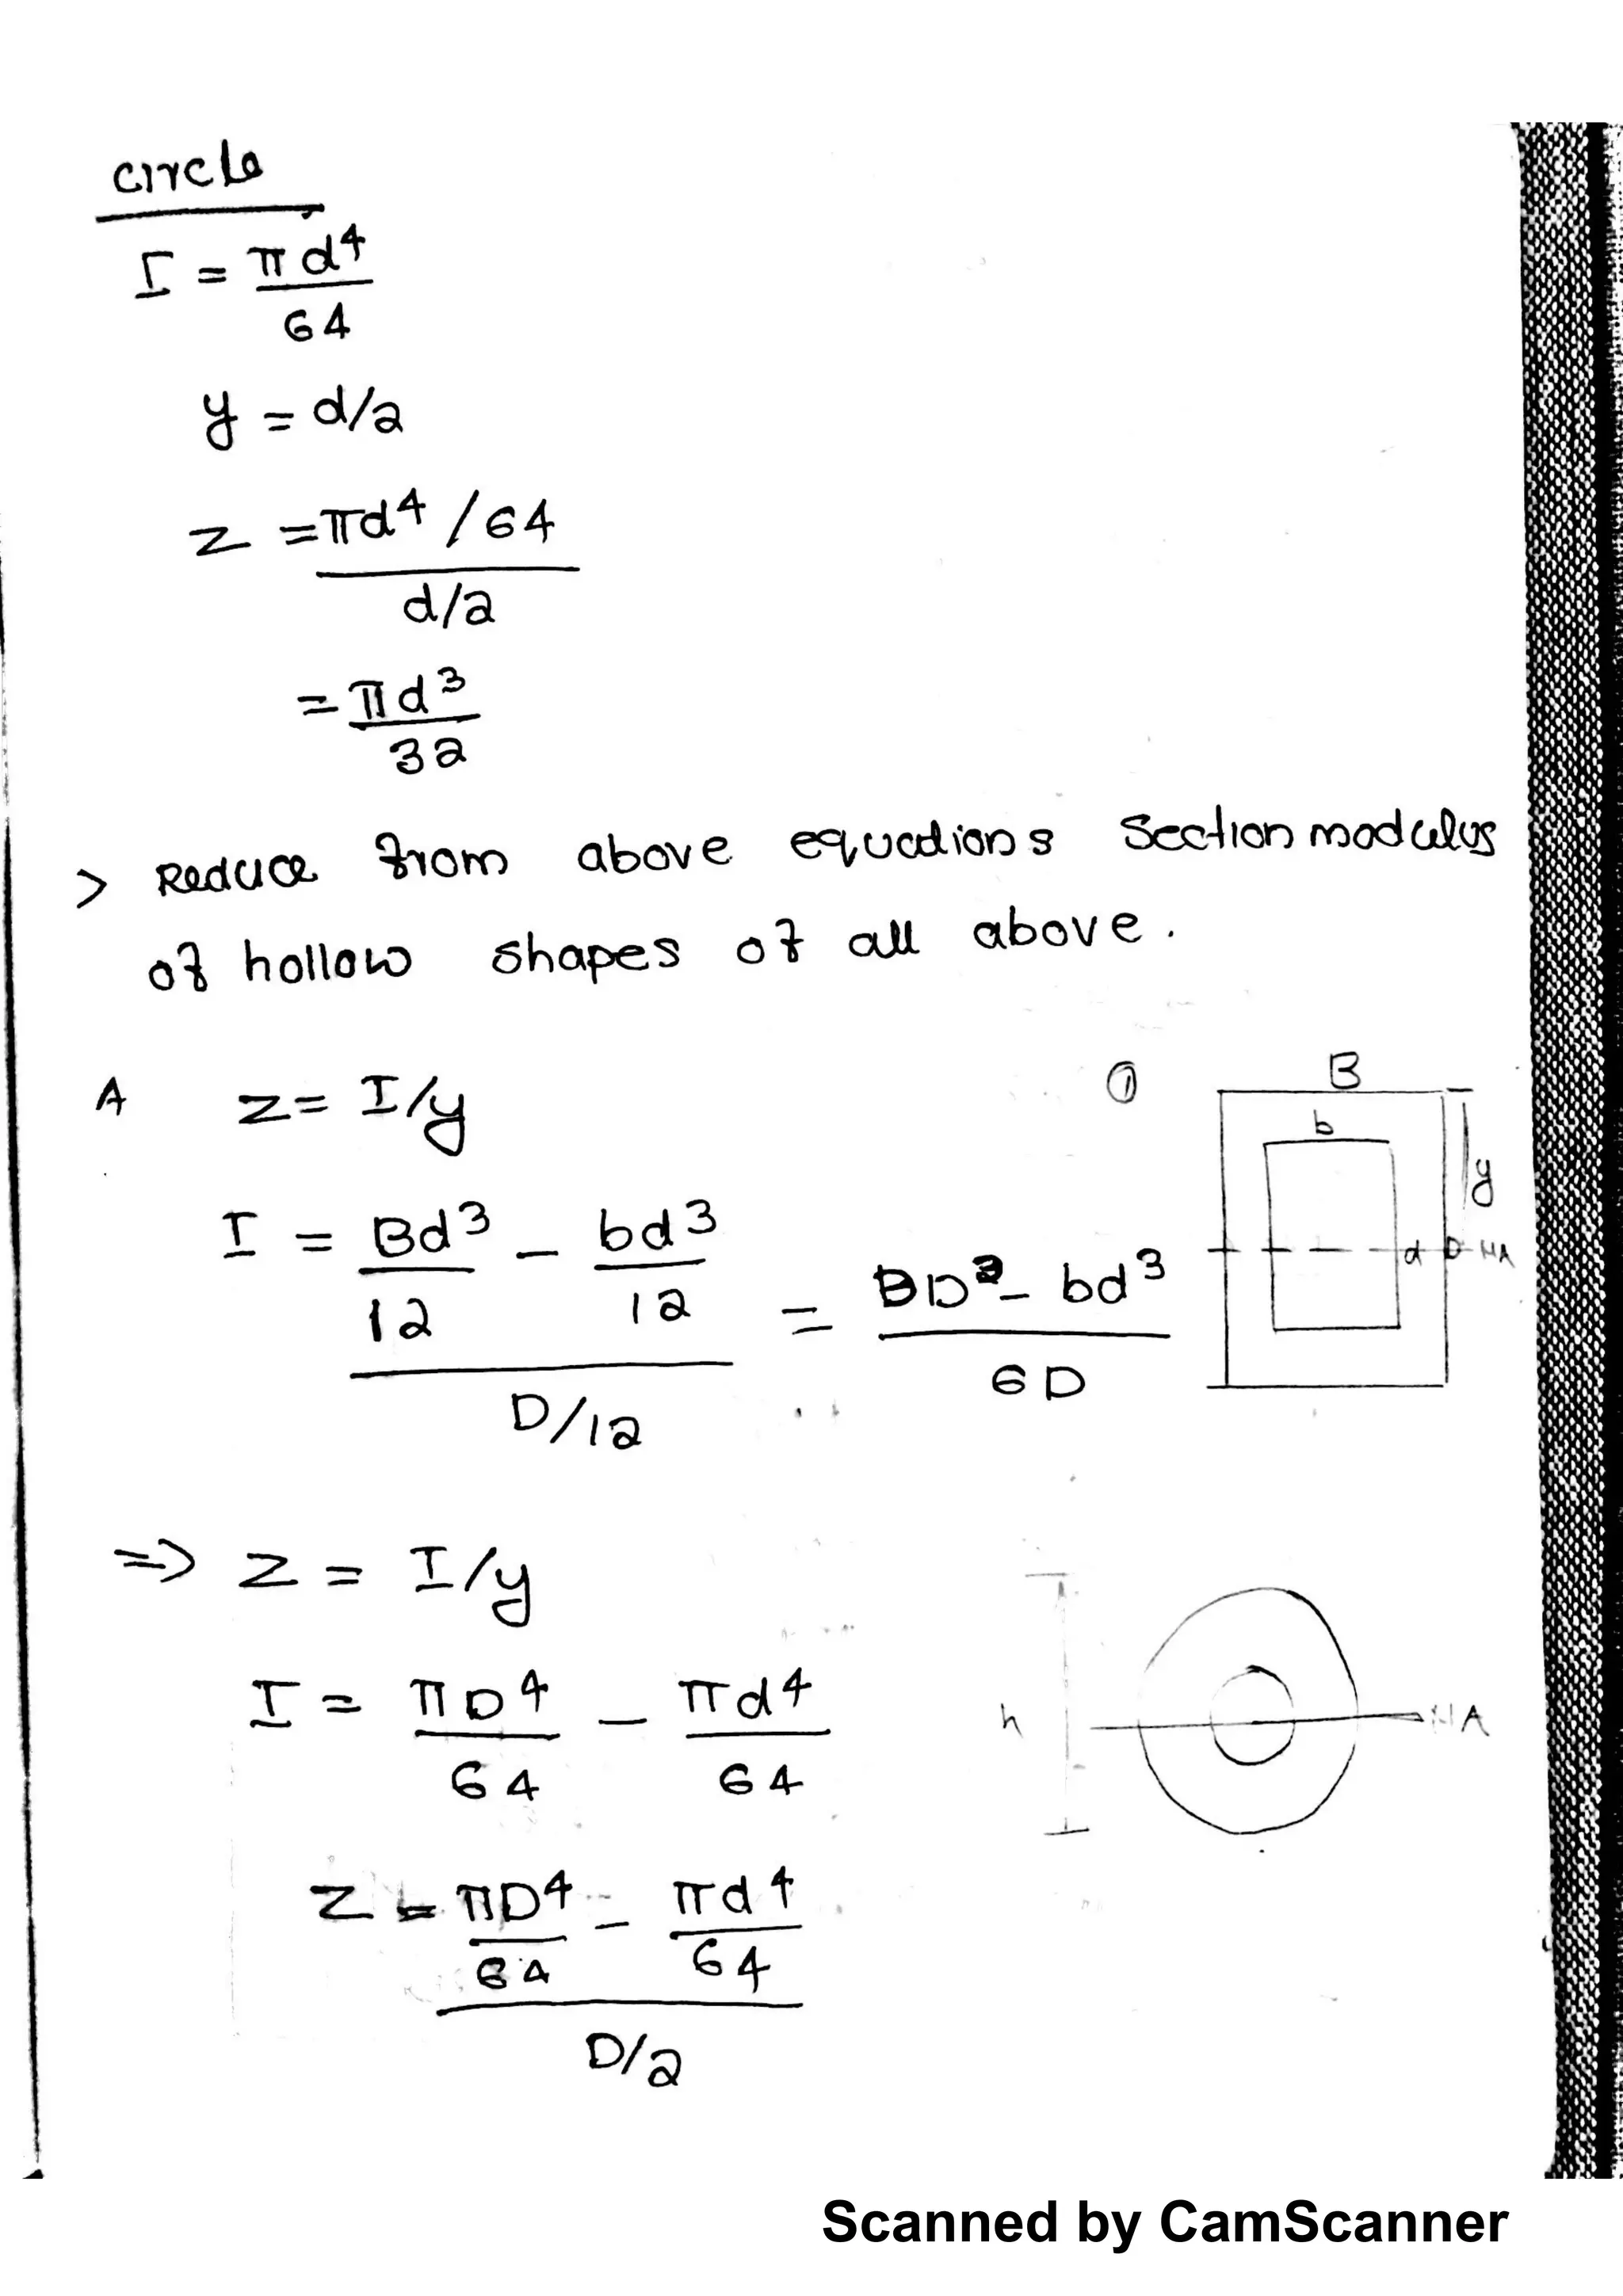 circle
I = πd⁴
64
y = d/2
z = πd⁴/64
d/2
= πd³
32
> Reduce from above equations section modulus
of hollow shapes of all above.
A z = I/y
① B
b
y
d D NA
I = Bd³ - bd³ = BD³ - bd³
12 12 6D
D/12
=> Z = I/y
I = πD⁴ - πd⁴
64 64
h NA
Z = πD⁴ - πd⁴
64 64
D/2
Scanned by CamScanner